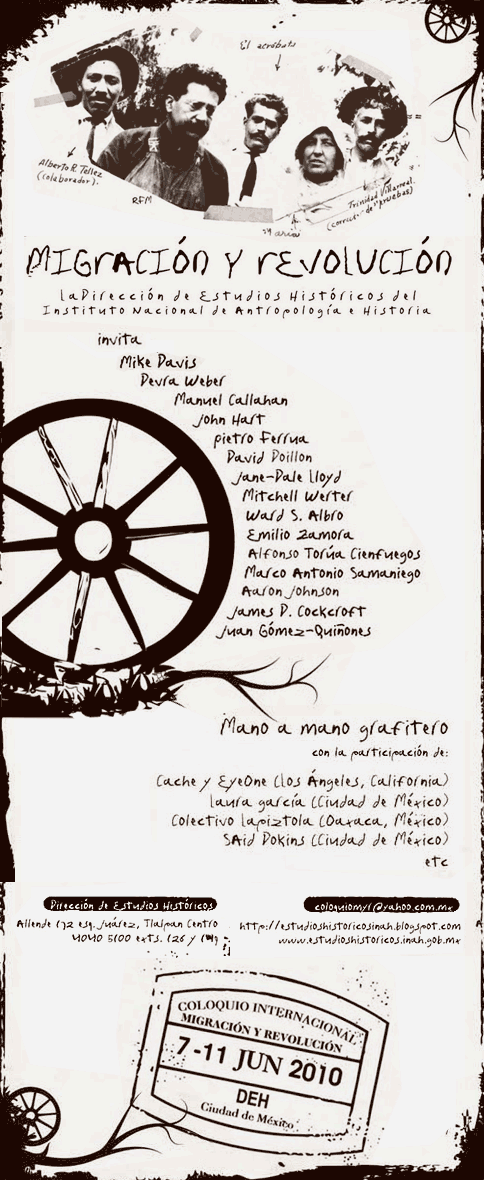 El acróbata
Alberto R. Téllez
(colaborador).
RFM
Trinidad Villarreal.
(correc de pruebas)
María
MIGRACIÓN Y REVOLUCIÓN
la Dirección de Estudios Históricos del
Instituto Nacional de Antropología e Historia
invita
Mike Davis
Devra Weber
Manuel Callahan
John Hart
pietro Ferrua
David Doillon
Jane-Dale lloyd
Mitchell Werter
Ward S. Albro
Emilio Zamora
Alfonso Torúa Cienfuegos
Marco Antonio Samaniego
Aaron Johnson
James D. Cockcroft
Juan Gómez-Quiñones
Mano a mano grafitero
con la participación de:
Cache y EyeOne (los Ángeles, California)
laura garcía (Ciudad de México)
Colectivo lapiztola (Oaxaca, México)
SAid Dokins (Ciudad de México)
etc
Dirección de Estudios Históricos
coloquiomyr@yahoo.com.mx
Allende 172 esq. Juárez, Tlalpan Centro
4040 5100 exts. 126 y
http://estudioshistoricosinah.blogspot.com
www.estudioshistoricos.inah.gob.mx
COLOQUIO INTERNACIONAL
MIGRACIÓN Y REVOLUCIÓN
7-11 JUN 2010
DEH
Ciudad de México